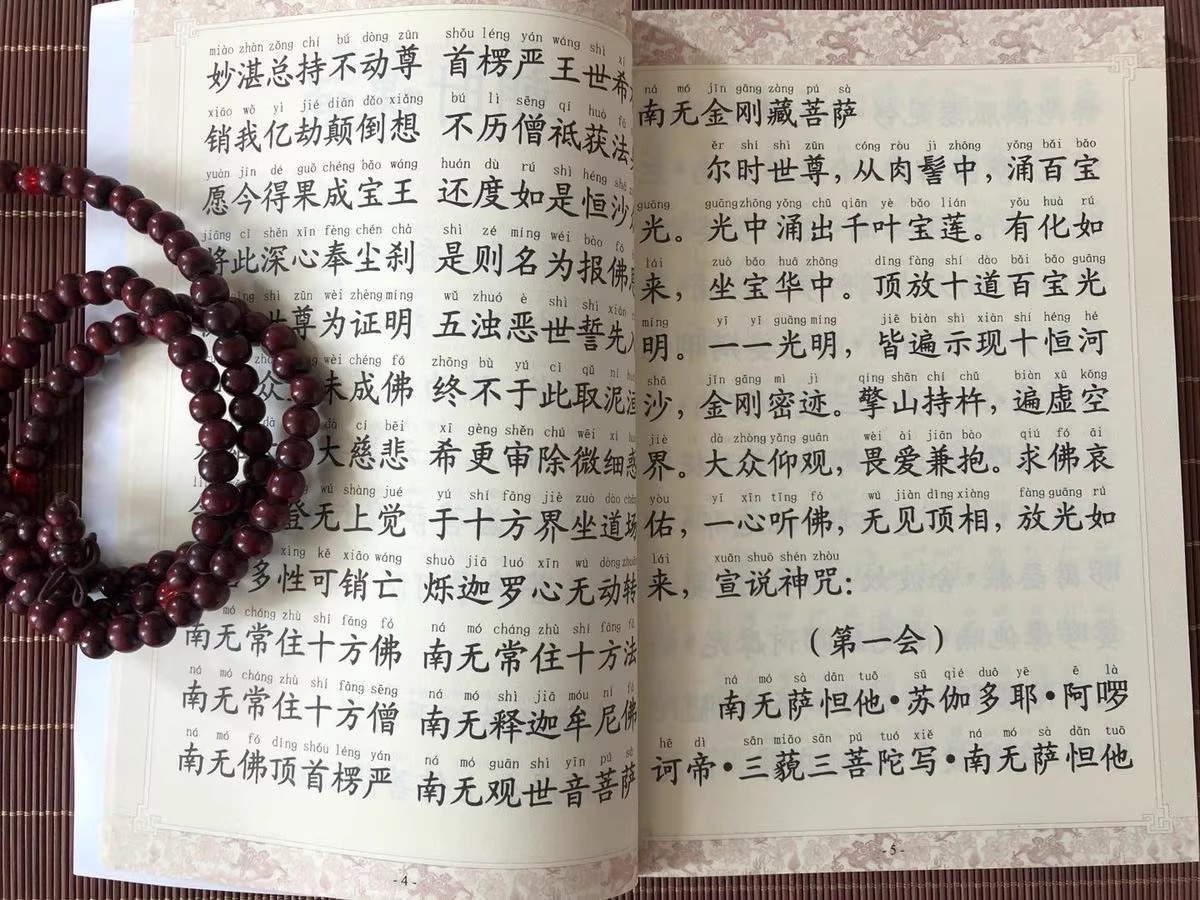 miào zhàn zǒng chí bú dòng zūn shǒu léng yán wáng shì xī
妙湛总持不动尊 首楞严王世希
xiāo wǒ yì jié diān dǎo xiǎng bú lì sēng qí huò fǎ
销我亿劫颠倒想 不历僧祇获法
yuàn jīn dé guǒ chéng bǎo wáng huán dù rú shì héng shā
愿今得果成宝王 还度如是恒沙
jiāng cǐ shēn xīn fèng chén chà shì zé míng wéi bào fó
将此深心奉尘刹 是则名为报佛
shì zūn wèi zhèng míng wǔ zhuó è shì shì xiān
尊为证明 五浊恶世誓先
wèi chéng fó zhōng bù yú cǐ qǔ ní
众 未成佛 终不于此取泥
dà cí bēi xī gèng shěn chú wēi xì
大慈悲 希更审除微细惑
wú shàng jué yú shí fāng jiè zuò dào chǎng
登无上觉 于十方界坐道场
xìng kě xiāo wáng shuò jiā luó xīn wú dòng zhuǎn
多性可销亡 烁迦罗心无动转
mó cháng zhù shí fāng fó ná mó cháng zhù shí fāng fǎ
南无常住十方佛 南无常住十方法
ná mó cháng zhù shí fāng sēng ná mó shì jiā móu ní fó
南无常住十方僧 南无释迦牟尼佛
ná mó fó dǐng shǒu léng yán ná mó guān shì yīn pú sà
南无佛顶首楞严 南无观世音菩萨
- 4 -
ná mó jīn gāng zàng pú sà
南无金刚藏菩萨
ěr shí shì zūn cóng ròu jì zhōng yǒng bǎi bǎo
尔时世尊，从肉髻中，涌百宝
guāng guāng zhōng yǒng chū qiān yè bǎo lián yǒu huà rú
光。光中涌出千叶宝莲。有化如
lái zuò bǎo huā zhōng dǐng fàng shí dào bǎi bǎo guāng
来，坐宝华中。顶放十道百宝光
míng yī yī guāng míng jiē biàn shì xiàn shí héng hé
明。一一光明，皆遍示现十恒河
shā jīn gāng mì jì qíng shān chí chǔ biàn xū kōng
沙，金刚密迹。擎山持杵，遍虚空
jiè dà zhòng yǎng guān wèi ài jiān bào qiú fó āi
界。大众仰观，畏爱兼抱。求佛哀
yòu yī xīn tīng fó wú jiàn dǐng xiàng fàng guāng rú
佑，一心听佛，无见顶相，放光如
lái xuān shuō shén zhòu
来，宣说神咒：
（第一会）
ná mó sà dān tuō sū qié duō yē ē là
南无萨怛他·苏伽多耶·阿啰
hē dì sān miǎo sān pú tuó xiě ná mó sà dān tuō
诃帝·三藐三菩陀写·南无萨怛他
- 5 -